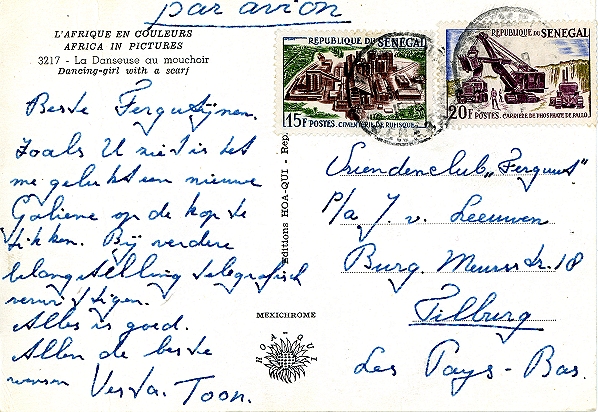 par avion
L'AFRIQUE EN COULEURS
AFRICA IN PICTURES
3217 - La Danseuse au mouchoir
Dancing-girl with a scarf
REPUBLIQUE DU SENEGAL
15F POSTES. CIMENTERIE DE RUFISQUE
REPUBLIQUE DU SENEGAL
20F POSTES. CARRIÈRE DE PHOSPHATE DE PALLO
Beste Fergutijnen.
Zoals U ziet is het
me gelukt een nieuwe
Galiene op de kop te
tikken. Bij verdere
belangstelling telegrafisch
Alles is goed.
Allen de beste
wensen Toon.
Editions HOA-QUI - Rep.
MEXICHROME
HOA-QUI
Vriendenclub "Ferguut"
P/a J. v. Leeuwen
Burg. Meursstr. 18
Tilburg
Les Pays-Bas.